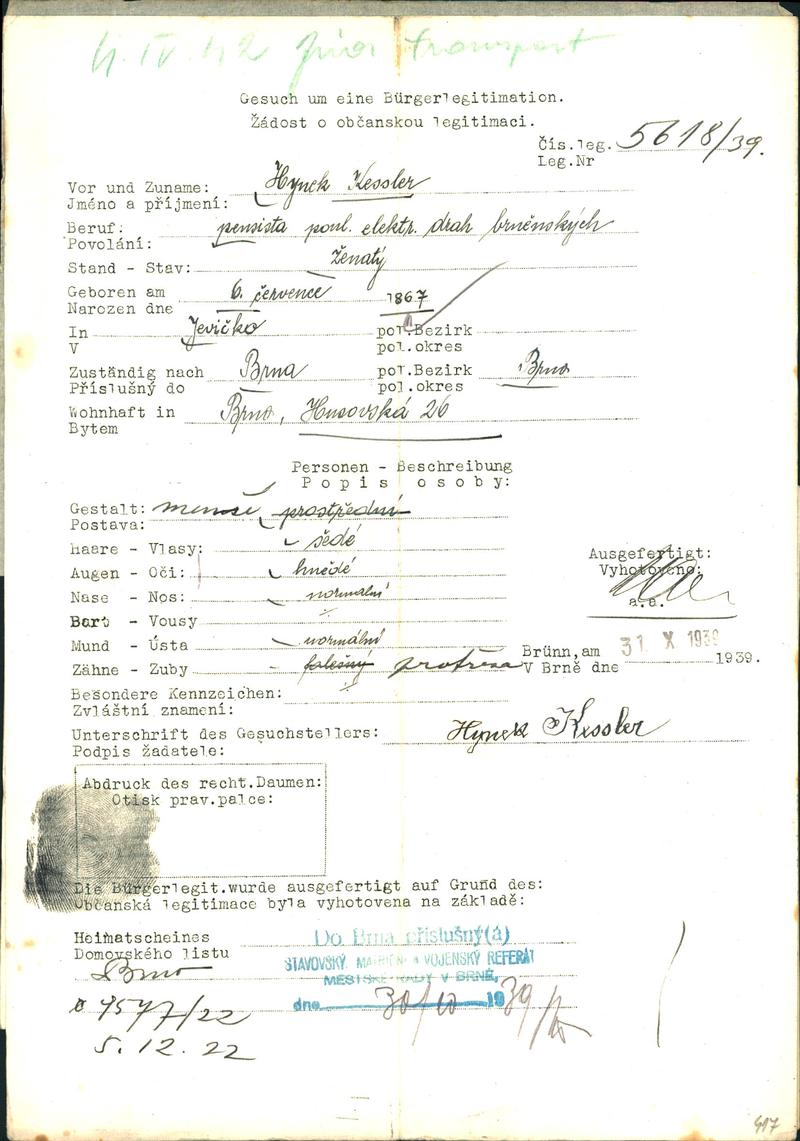 4. IV. 42 transport
Gesuch um eine Bürgerlegitimation.
Žádost o občanskou legitimaci.
Čís.leg. 5618/39.
Leg.Nr
Vor und Zuname: Hynek Kessler
Jméno a příjmení:
Beruf: pensista poul. elektr. drah brněnských
Povolání:
Stand - Stav: ženatý
Geboren am 6. července 1867
Narozen dne
In Jevíčko pol.Bezirk
V pol.okres
Zuständig nach Brna pol.Bezirk Brno
Příslušný do pol.okres
Wohnhaft in Brno, Husovská 26
Bytem
Personen - Beschreibung
Popis osoby:
Gestalt: menší prostřední
Postava:
Haare - Vlasy: šedé
Augen - Oči: hnědé
Nase - Nos: normální
Bart - Vousy
Mund - Ústa normální
Zähne - Zuby falešný protésa
Ausgefertigt:
Vyhotoveno:
a.a.
Brünn, am 31. X 1939
V Brně dne 1939.
Besondere Kennzeichen:
Zvláštní znamení:
Unterschrift des Gesuchstellers: Hynek Kessler
Podpis žadatele:
Abdruck des recht.Daumen:
Otisk prav.palce:
Die Bürgerlegit.wurde ausgefertigt auf Grund des:
Občanská legitimace byla vyhotovena na základě:
Heimatscheines
Domovského listu
Do Brna příslušný(á)
STAVOVSKÝ, MATRIČNÍ A VOJENSKÝ REFERÁT
MĚSTSKÉ RADY V BRNĚ,
dne 30/10 1939
Brno
9577/22
5. 12. 22
417